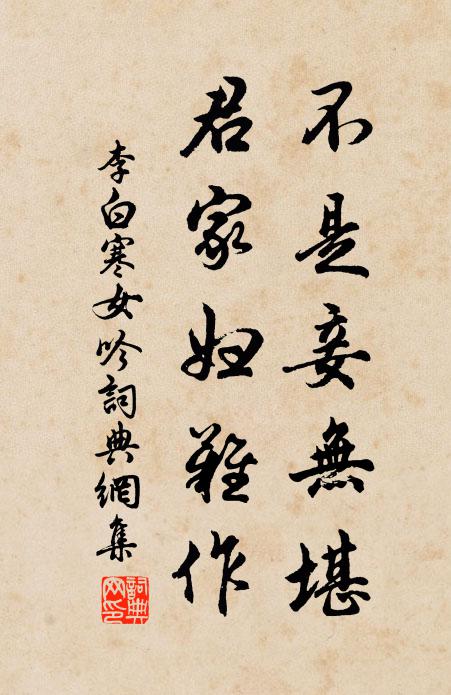 不是妾無堪
君家婦難作
李白寒女吟詞典網集
詞典網印